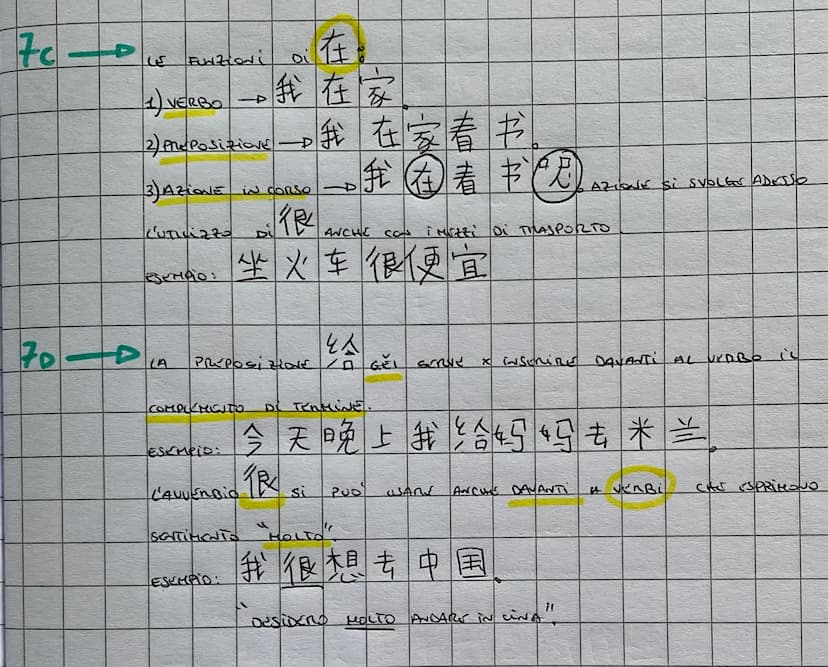 7c → LE FUNZIONI DI 在:
1) VERBO → 我在家。
2) PREPOSIZIONE → 我在家看书。
3) AZIONE IN CORSO → 我在看书呢。AZIONE SI SVOLGE ADESSO
L'UTILIZZO DI 很 ANCHE CON I MEZZI DI TRASPORTO
ESEMPIO: 坐火车很便宜
7D → LA PREPOSIZIONE 给 GĚI SERVE X INSERIRE DAVANTI AL VERBO IL
COMPLEMENTO DI TERMINE.
ESEMPIO: 今天晚上我给妈妈去米兰。
L'AVVERBIO 很 SI PUO' USARE ANCHE DAVANTI A VERBI CHE ESPRIMONO
SENTIMENTO "MOLTO".
ESEMPIO: 我很想去中国。
"DESIDERO MOLTO ANDARE IN CINA".